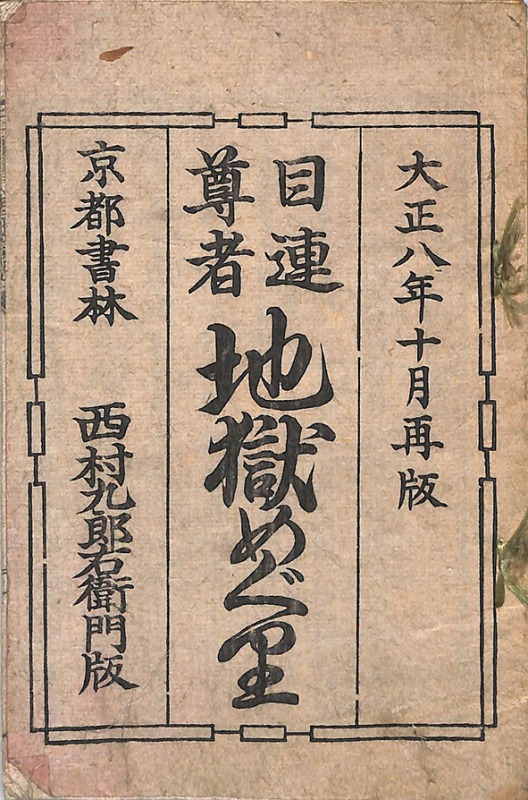 大正八年十月再版
目連
尊者
地獄めぐ里
京都書林 西村九郎右衛門版